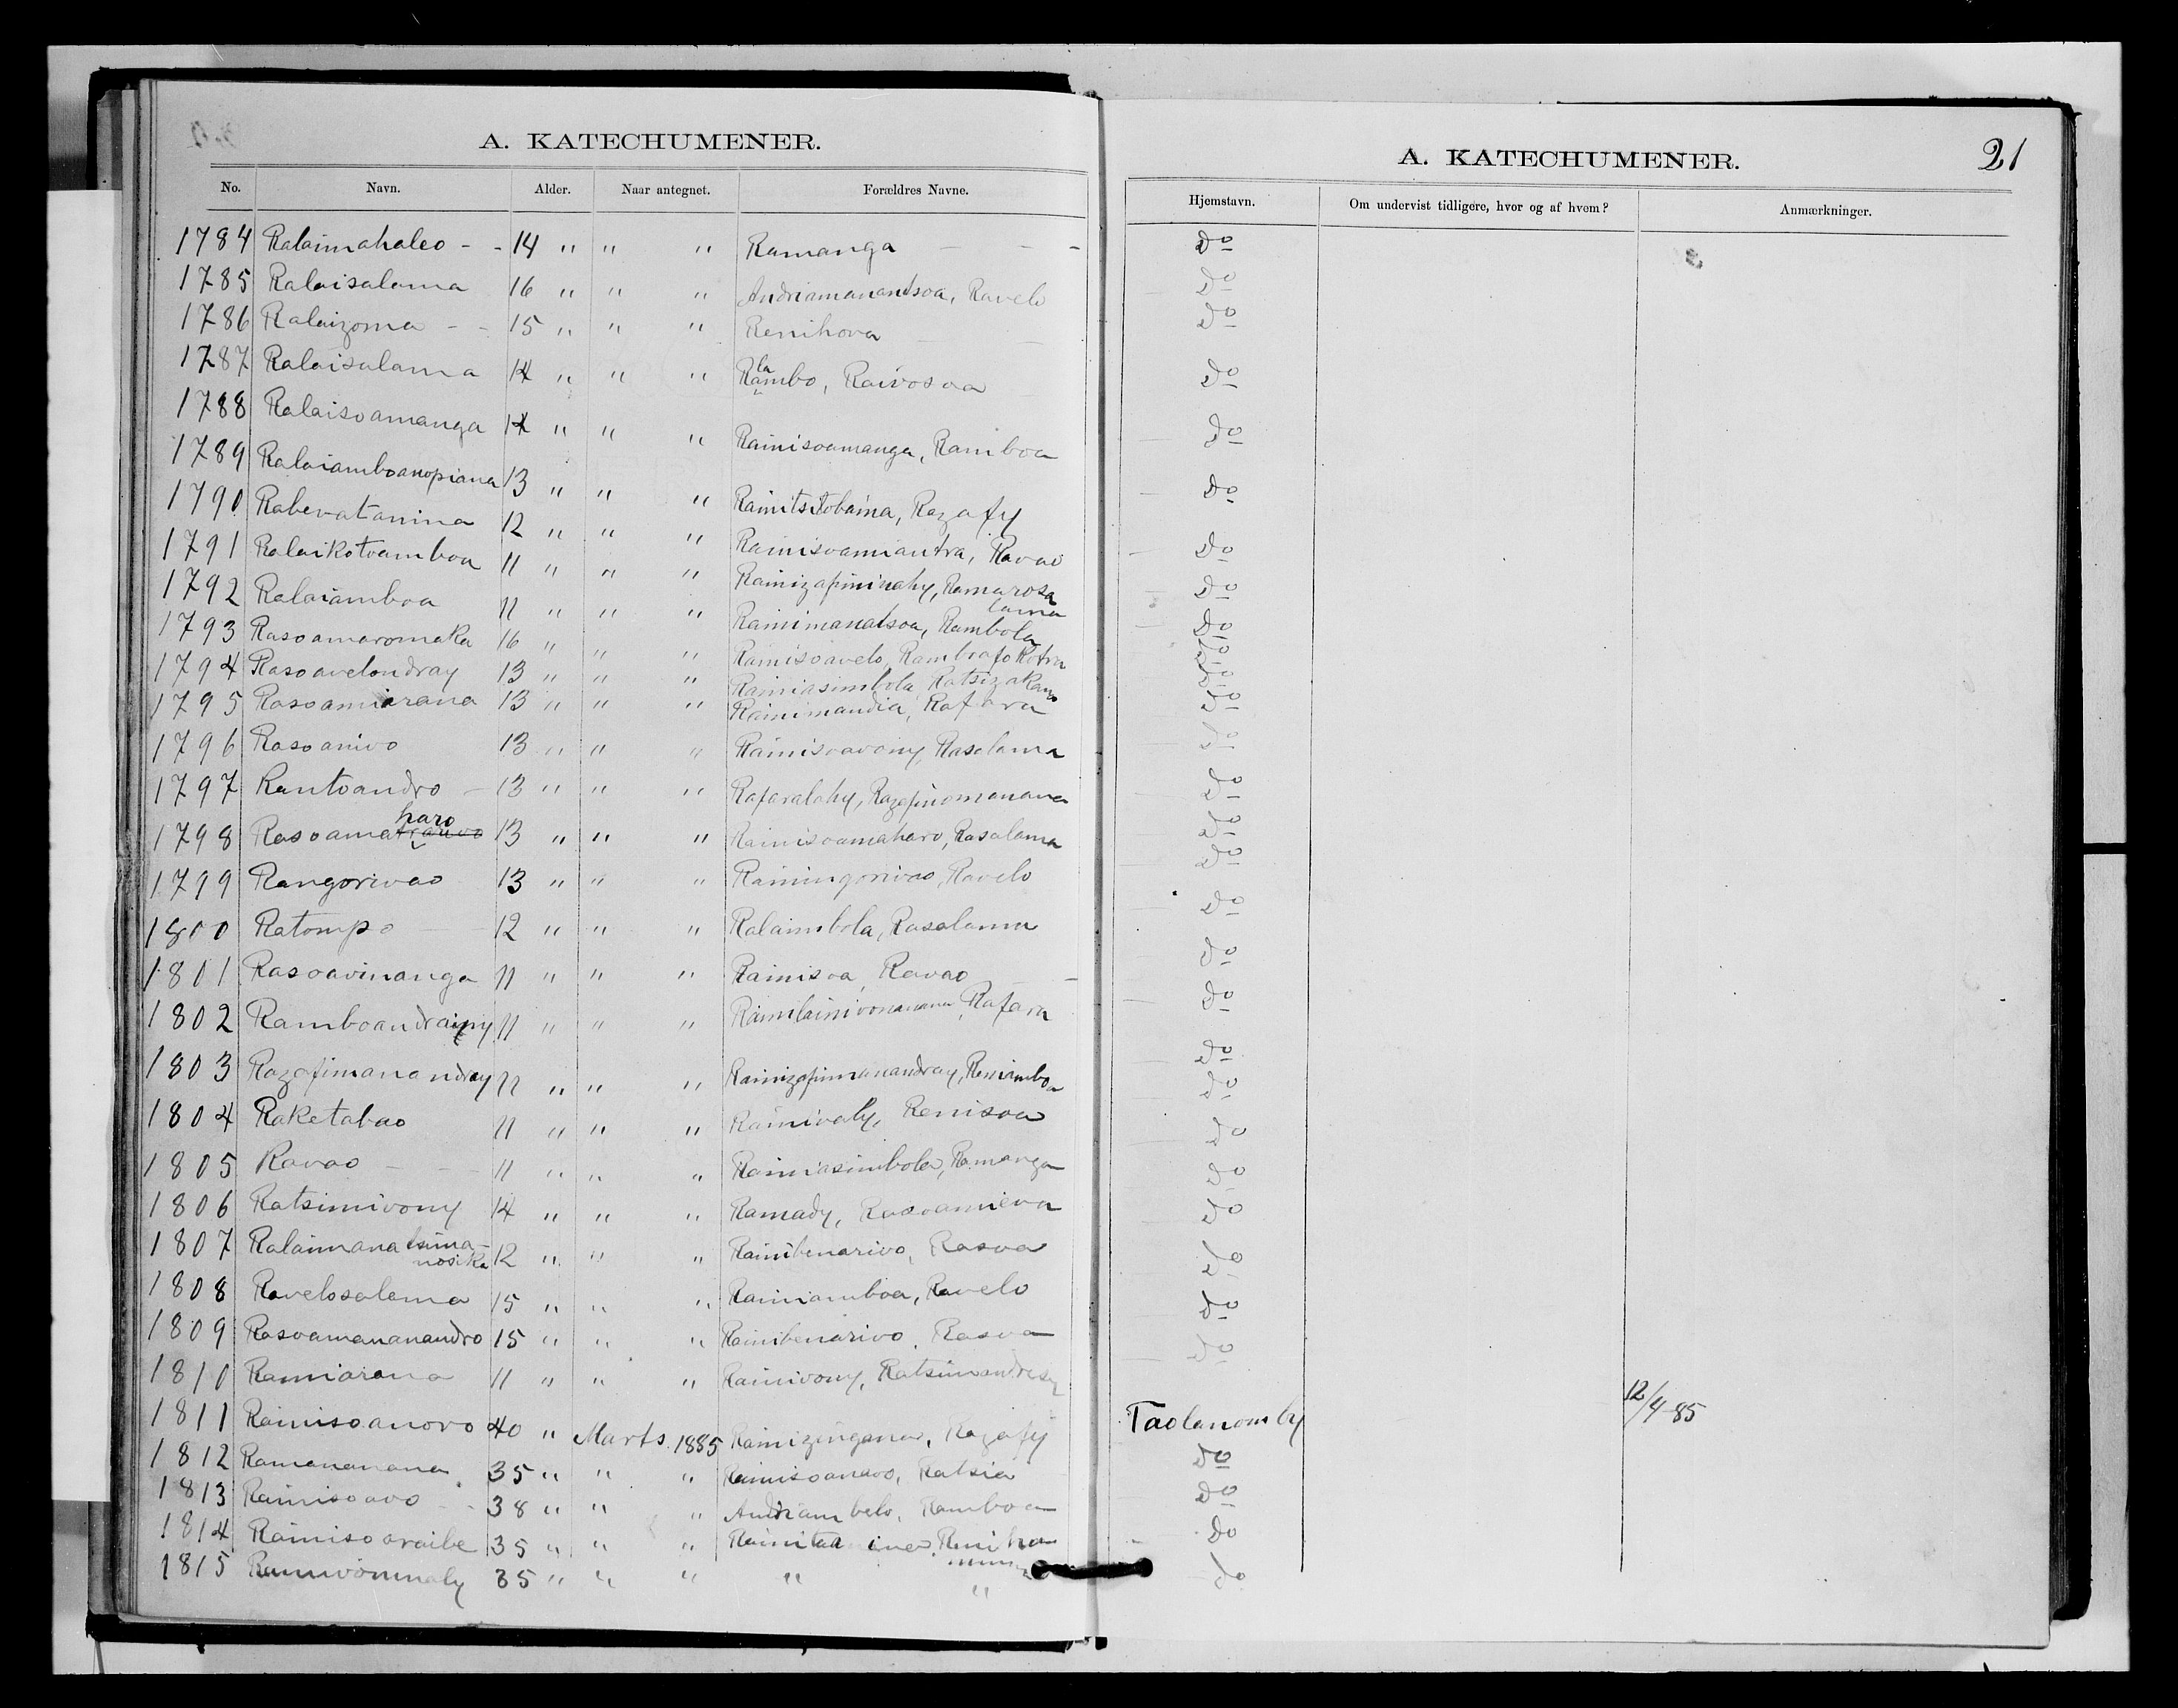 A. KATECHUMENER.
No. Navn. Alder. Naar antegnet. Forældres Navne.
1784 Ralaimahaleo - - 14 " " " Ramanga - - -
1785 Ralaisalama 16 " " " Andriamanantsoa, Ravelo
1786 Ralaizoma - - 15 " " " Renihova
1787 Ralaisalama 14 " " " Ralambo, Raivosoa
1788 Ralaisoamanga 14 " " " Rainisoamanga, Ramboa
1789 Ralaiamboanopiana 13 " " " Rainitsitobaina, Razafy
1790 Rabevatanina 12 " " " Rainisoamiantra, Ravao
1791 Ralaikotoamboa 11 " " " Rainizafininahy, Ramarosalama
1792 Ralaiamboa 11 " " " Rainimanatsoa, Rambola
1793 Rasoamaromaka 16 " " " Rainisoavelo, Ramboafokotra
1794 Rasoavelondray 13 " " " Rainiasimbola, Ratsizakano
1795 Rasoamiarana 13 " " " Rainimandia, Rafara
1796 Rasoanivo 13 " " " Rainisoavony, Rasalama
1797 Rantoandro - 13 " " " Rafaralahy, Razafinomanana
1798 Rasoamaharo 13 " " " Rainisoamaharo, Rasalama
1799 Rangorivao 13 " " " Rainingorivao, Ravelo
1800 Ratompo - 12 " " " Ralaimbola, Rasalama
1801 Rasoavinanga 11 " " " Rainisoa, Ravao -
1802 Ramboandrainy 11 " " " Rafara
1803 Razafimanandray 11 " " " Rainizafimanandray, Reniamboa
1804 Raketabao 11 " " " Rainivaly, Renisoa
1805 Ravao - - 11 " " " Rainiasimbola, Ramanga
1806 Ratsimivony 14 " " " Ramady, Rasoamieva
1807 Ralaimanatsimanosika 12 " " " Rainibenarivo, Rasoa
1808 Ravelosalama 15 " " " Rainiamboa, Ravelo
1809 Rasoamananandro 15 " " " Rainibenarivo, Rasoa
1810 Ramiarana 11 " " " Rainivony, Ratsimandresy
1811 Rainisoanovo 40 " Marts 1885 Rainizingana, Razafy
1812 Ramananana 35 " " " Rainisoanavo, Ratsia
1813 Rainisoavo - - 38 " " " Andriambelo, Ramboa
1814 Rainisoaraibe 35 " " "
1815 35 " " " " "
A. KATECHUMENER. 21
Hjemstavn. Om undervist tidligere, hvor og af hvem? Anmærkninger.
Do
Do
Do
Do
Do
Do
Do
Do
Do
Do
Do
Do
Do
Do
Do
Do
Do
Do
Do
Do
Do
Do
Do
Do
Do
Do
Do
Taolanomby 12/4-85
Do
Do
Do
Do